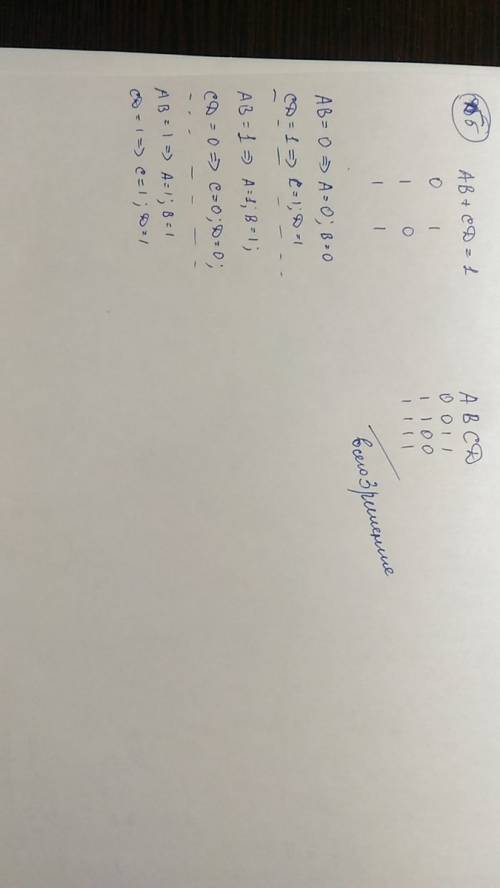 5
AB + CD = 1
0 1
1 0
1 1
AB = 0 => A=0; B=0
CD = 1 => C=1; D=1
AB = 1 => A=1; B=1;
CD = 0 => C=0; D=0;
AB = 1 => A=1; B=1
CD = 1 => C=1; D=1
A B C D
0 0 1 1
1 1 0 0
1 1 1 1
всего 3 ришение